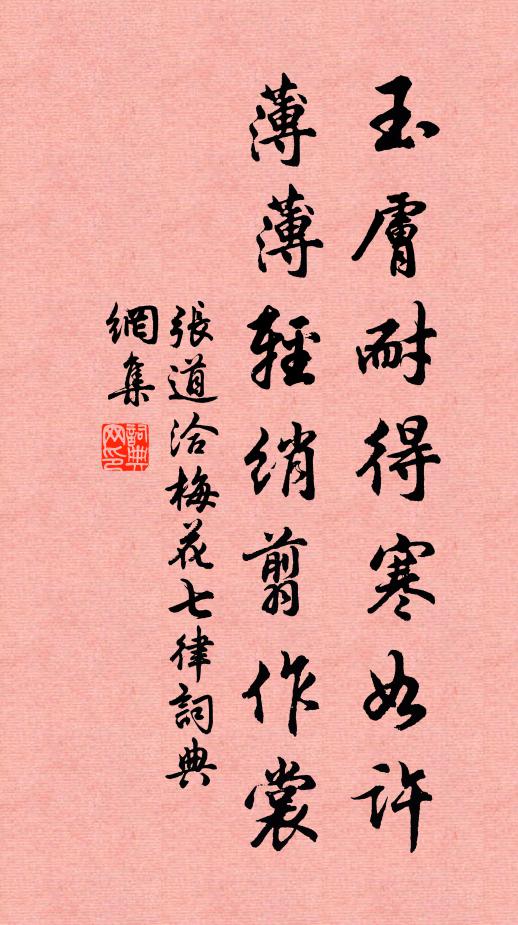 玉膚耐得寒如許
薄薄輕綃剪作裳
張道洽梅花七律詞典
網集
詞典網印